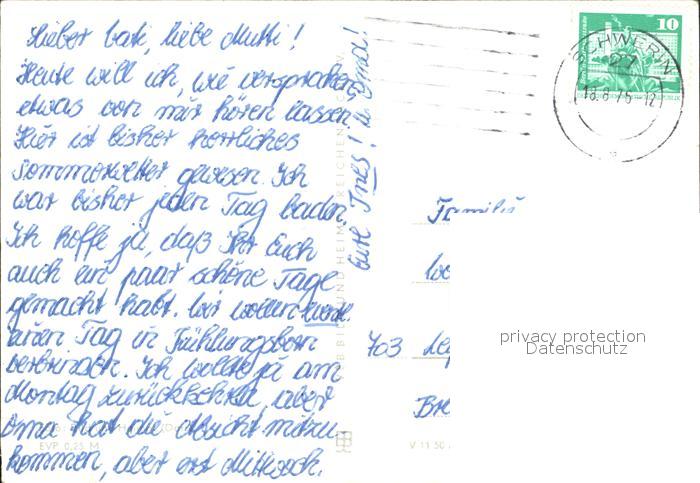 Lieber Vati, liebe Mutti!
Heute will ich, wie versprochen
etwas von mir hören lassen.
Hier ist bisher herrliches
Sommerwetter gewesen. Ich
war bisher jeden Tag baden.
Ich hoffe ja, daß Ihr Euch
auch ein paar schöne Tage
gemacht habt. Wir wollen heute
einen Tag in Frühlungsborn
verbringen. Ich wollte ja am
Montag zurückfahren, aber
Oma hat die Absicht mitzu-
kommen, aber erst Mittwoch.
Eure Ines! u. Oma!
EVP 0,25 M
V 11 50
10
SCHWERIN
27
18.8.75-12
Familie
703
privacy protection
Datenschutz